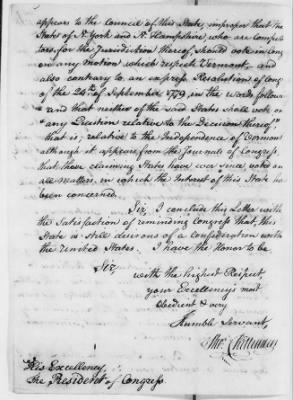 appears to the Council of this State, improper that the
States of N. York and N. Hampshire, who are competi=
tors, for the Jurisdiction thereof, should vote in Cong
on any motion which respect Vermont, and
also contrary to an express Resolution of Cong
of the 24th of September 1779, in the words follow
"and that neither of the said States shall vote on
"any Decision relative to the Decision thereof"
that is, relative to the Independence of Vermont
although it appears from the Journals of Congress,
that these claiming States have ever since voted in
all matters, in which the Interest of this State ha
been concerned.
Sir, I conclude this Letter with
the Satisfaction of reminding Congress that this
State is still desirous of a confederation with
the United States. I have the Honor to be
Sir,
with the highest Respect,
your Excellency's most
Obedient & very
Humble Servant,
Tho. Chittenden
His Excellency,
the President of Congress.